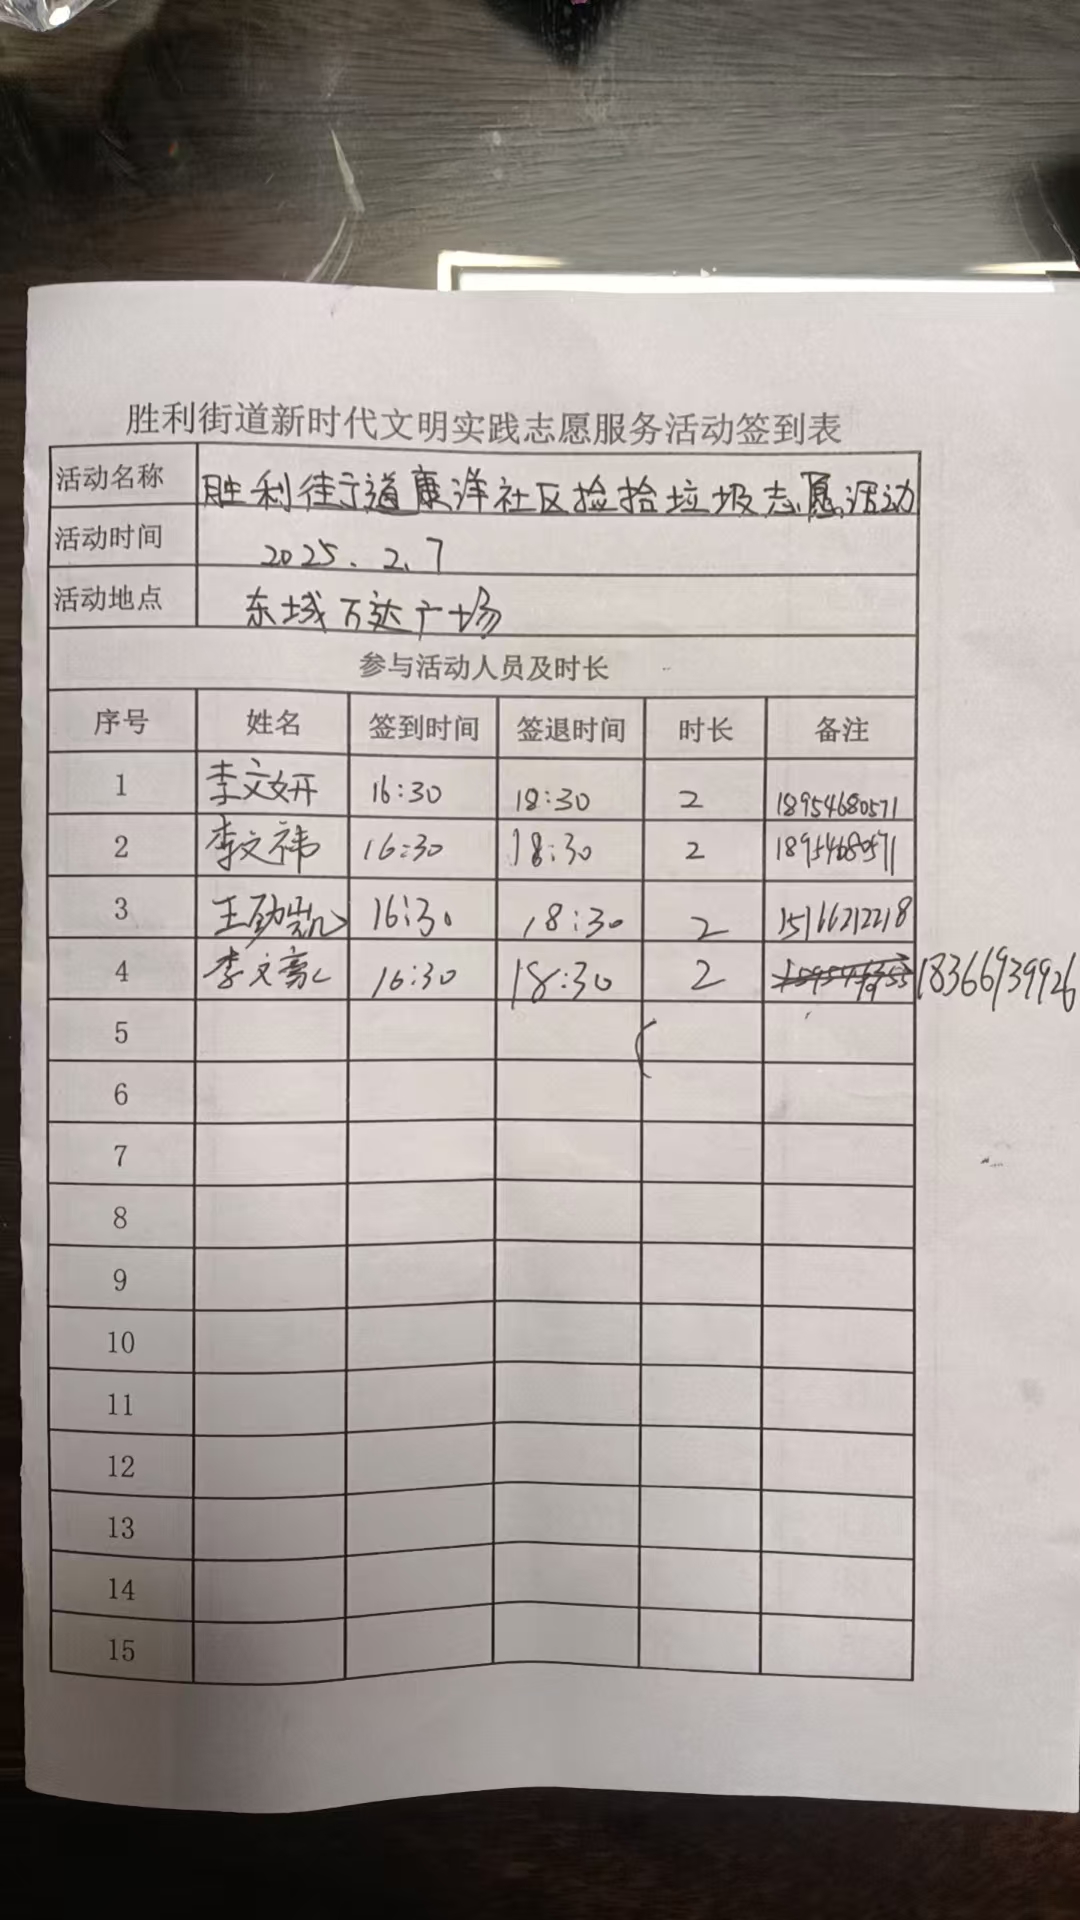 胜利街道新时代文明实践志愿服务活动签到表
活动名称 胜利街道康洋社区捡拾垃圾志愿活动
活动时间 2025.2.7
活动地点 东城万达广场
参与活动人员及时长
序号 姓名 签到时间 签退时间 时长 备注
1 李文妍 16:30 18:30 2 18954680571
2 李文祎 16:30 18:30 2 18954680571
3 王劭凯 16:30 18:30 2 15166212218
4 李文豪 16:30 18:30 2 18366939926
5
6
7
8
9
10
11
12
13
14
15